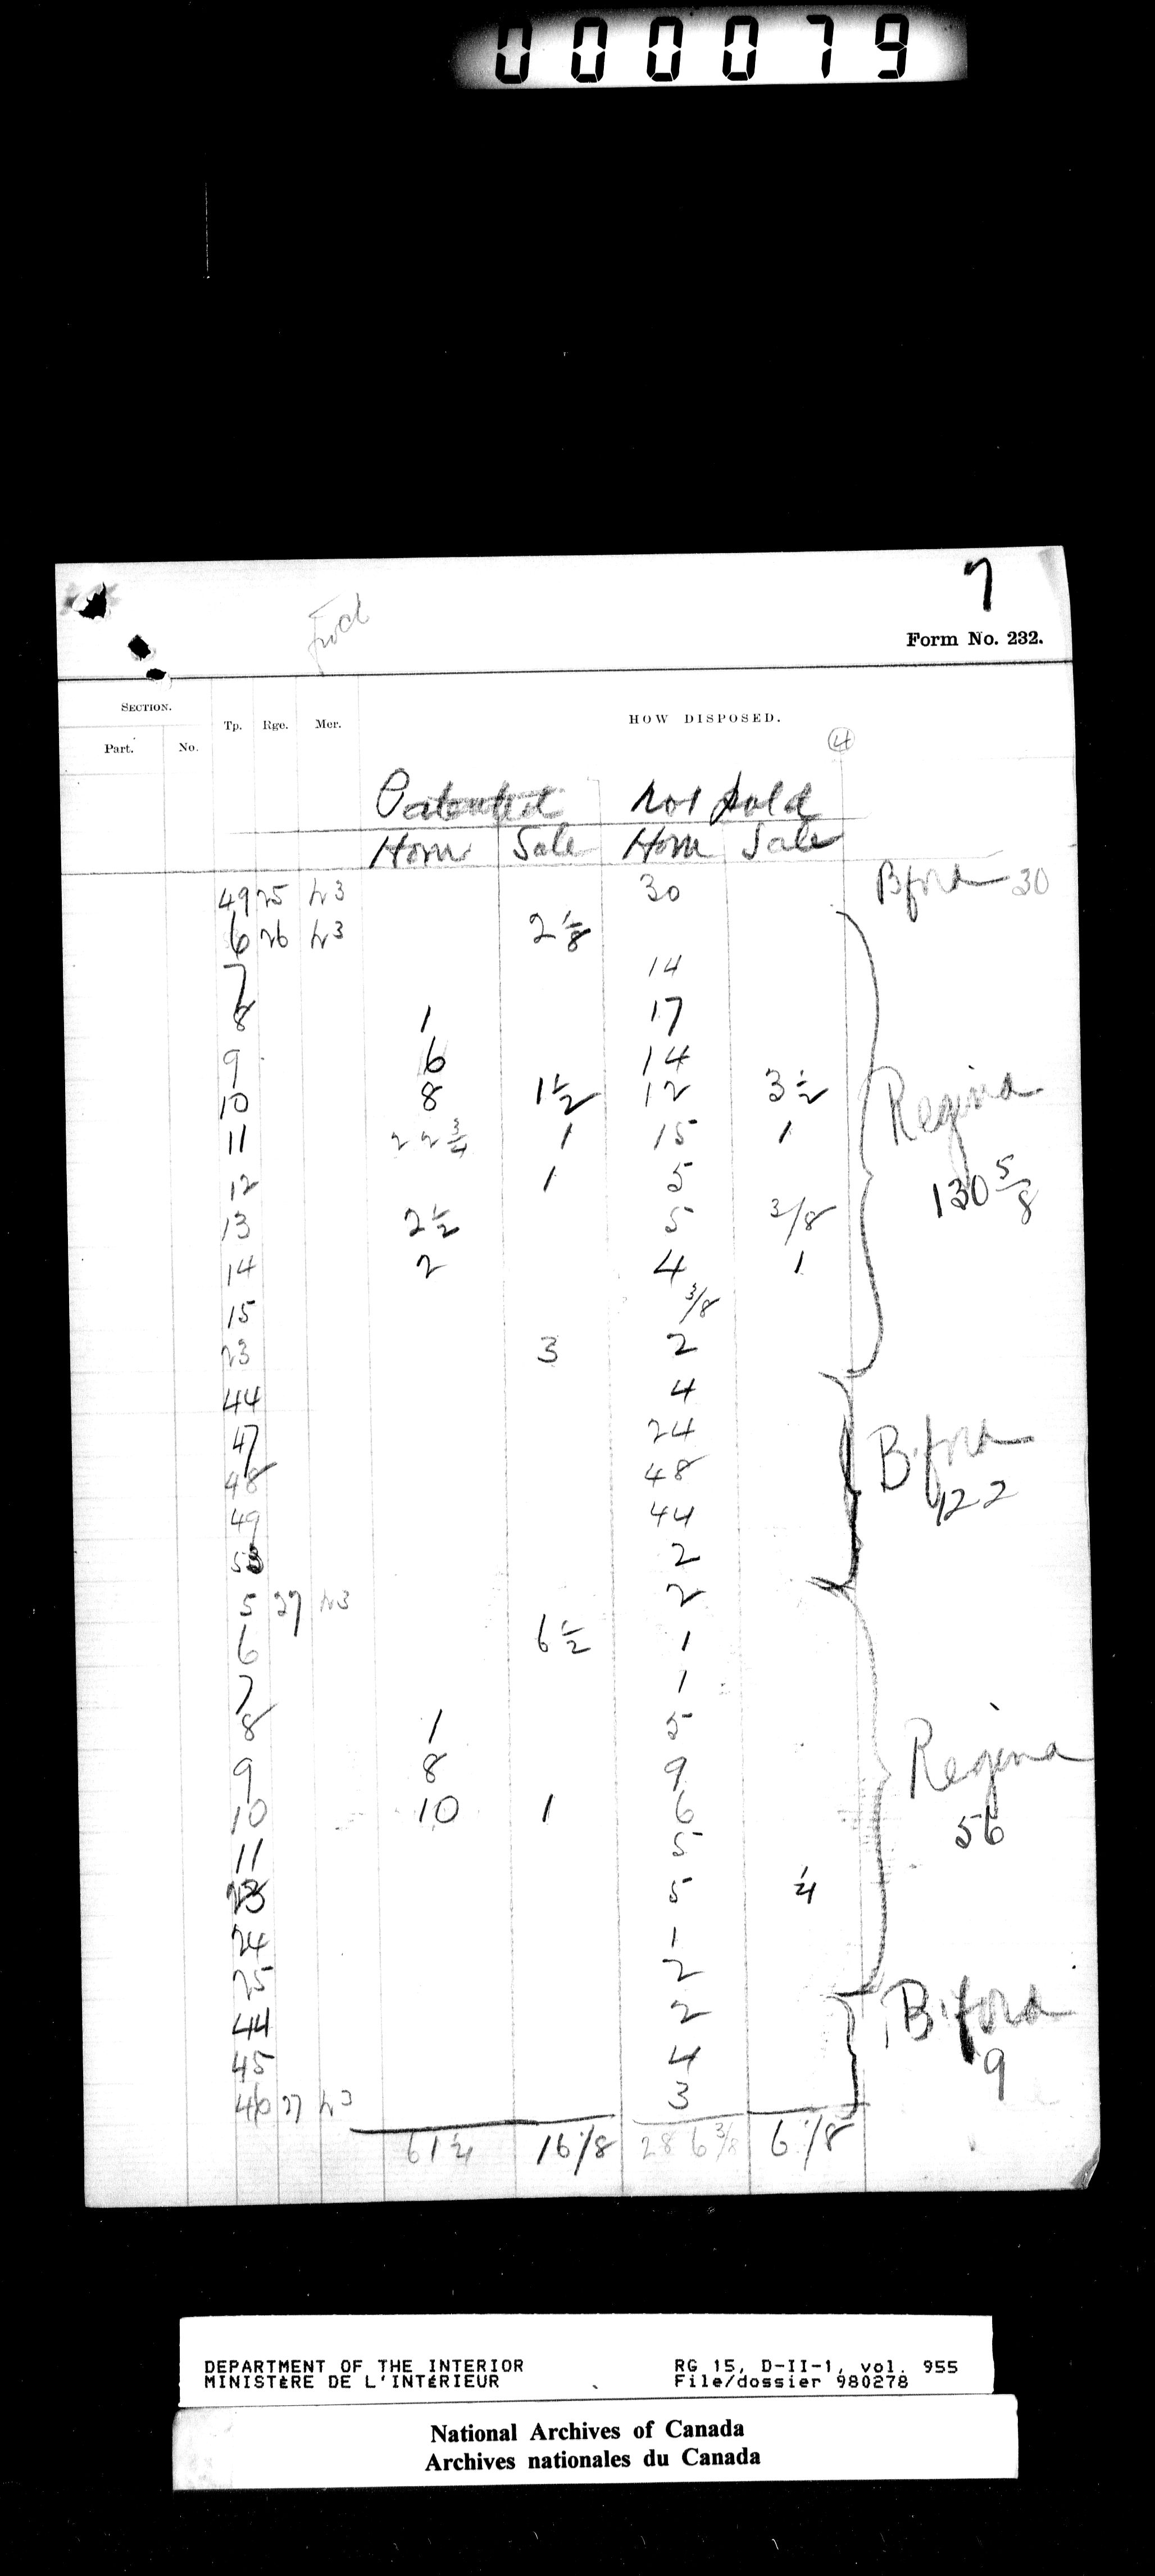 000079
7
Form No. 232.
SECTION.
Tp. Rge. Mer. HOW DISPOSED.
Part. No.
4
Patented Not sold
Hom Sale Hom Sale
49 25 W3 30 Bford 30
6 26 W3 2 1/8
7 14
8 1 17
9 6 14
10 8 1 1/2 12 3 1/2
11 22 3/4 1 15 1 Regina
12 1 5 130 5/8
13 2 1/2 5 3/8
14 2 4 1
15 3/8
23 3 2
44 4
47 24 B'ford
48 48 122
49 44
2
5 27 W3 2
6 6 1/2 1
7 1
8 1 5 Regina
9 8 9
10 10 1 6 56
11 5
23 5 1/4
24 1
25 2
44 2 B'ford
45 4 9
46 27 W3 3
61 1/4 16 1/8 286 3/8 6 1/8
DEPARTMENT OF THE INTERIOR RG 15, D-II-1, vol. 955
MINISTÈRE DE L'INTÉRIEUR File/dossier 980278
National Archives of Canada
Archives nationales du Canada